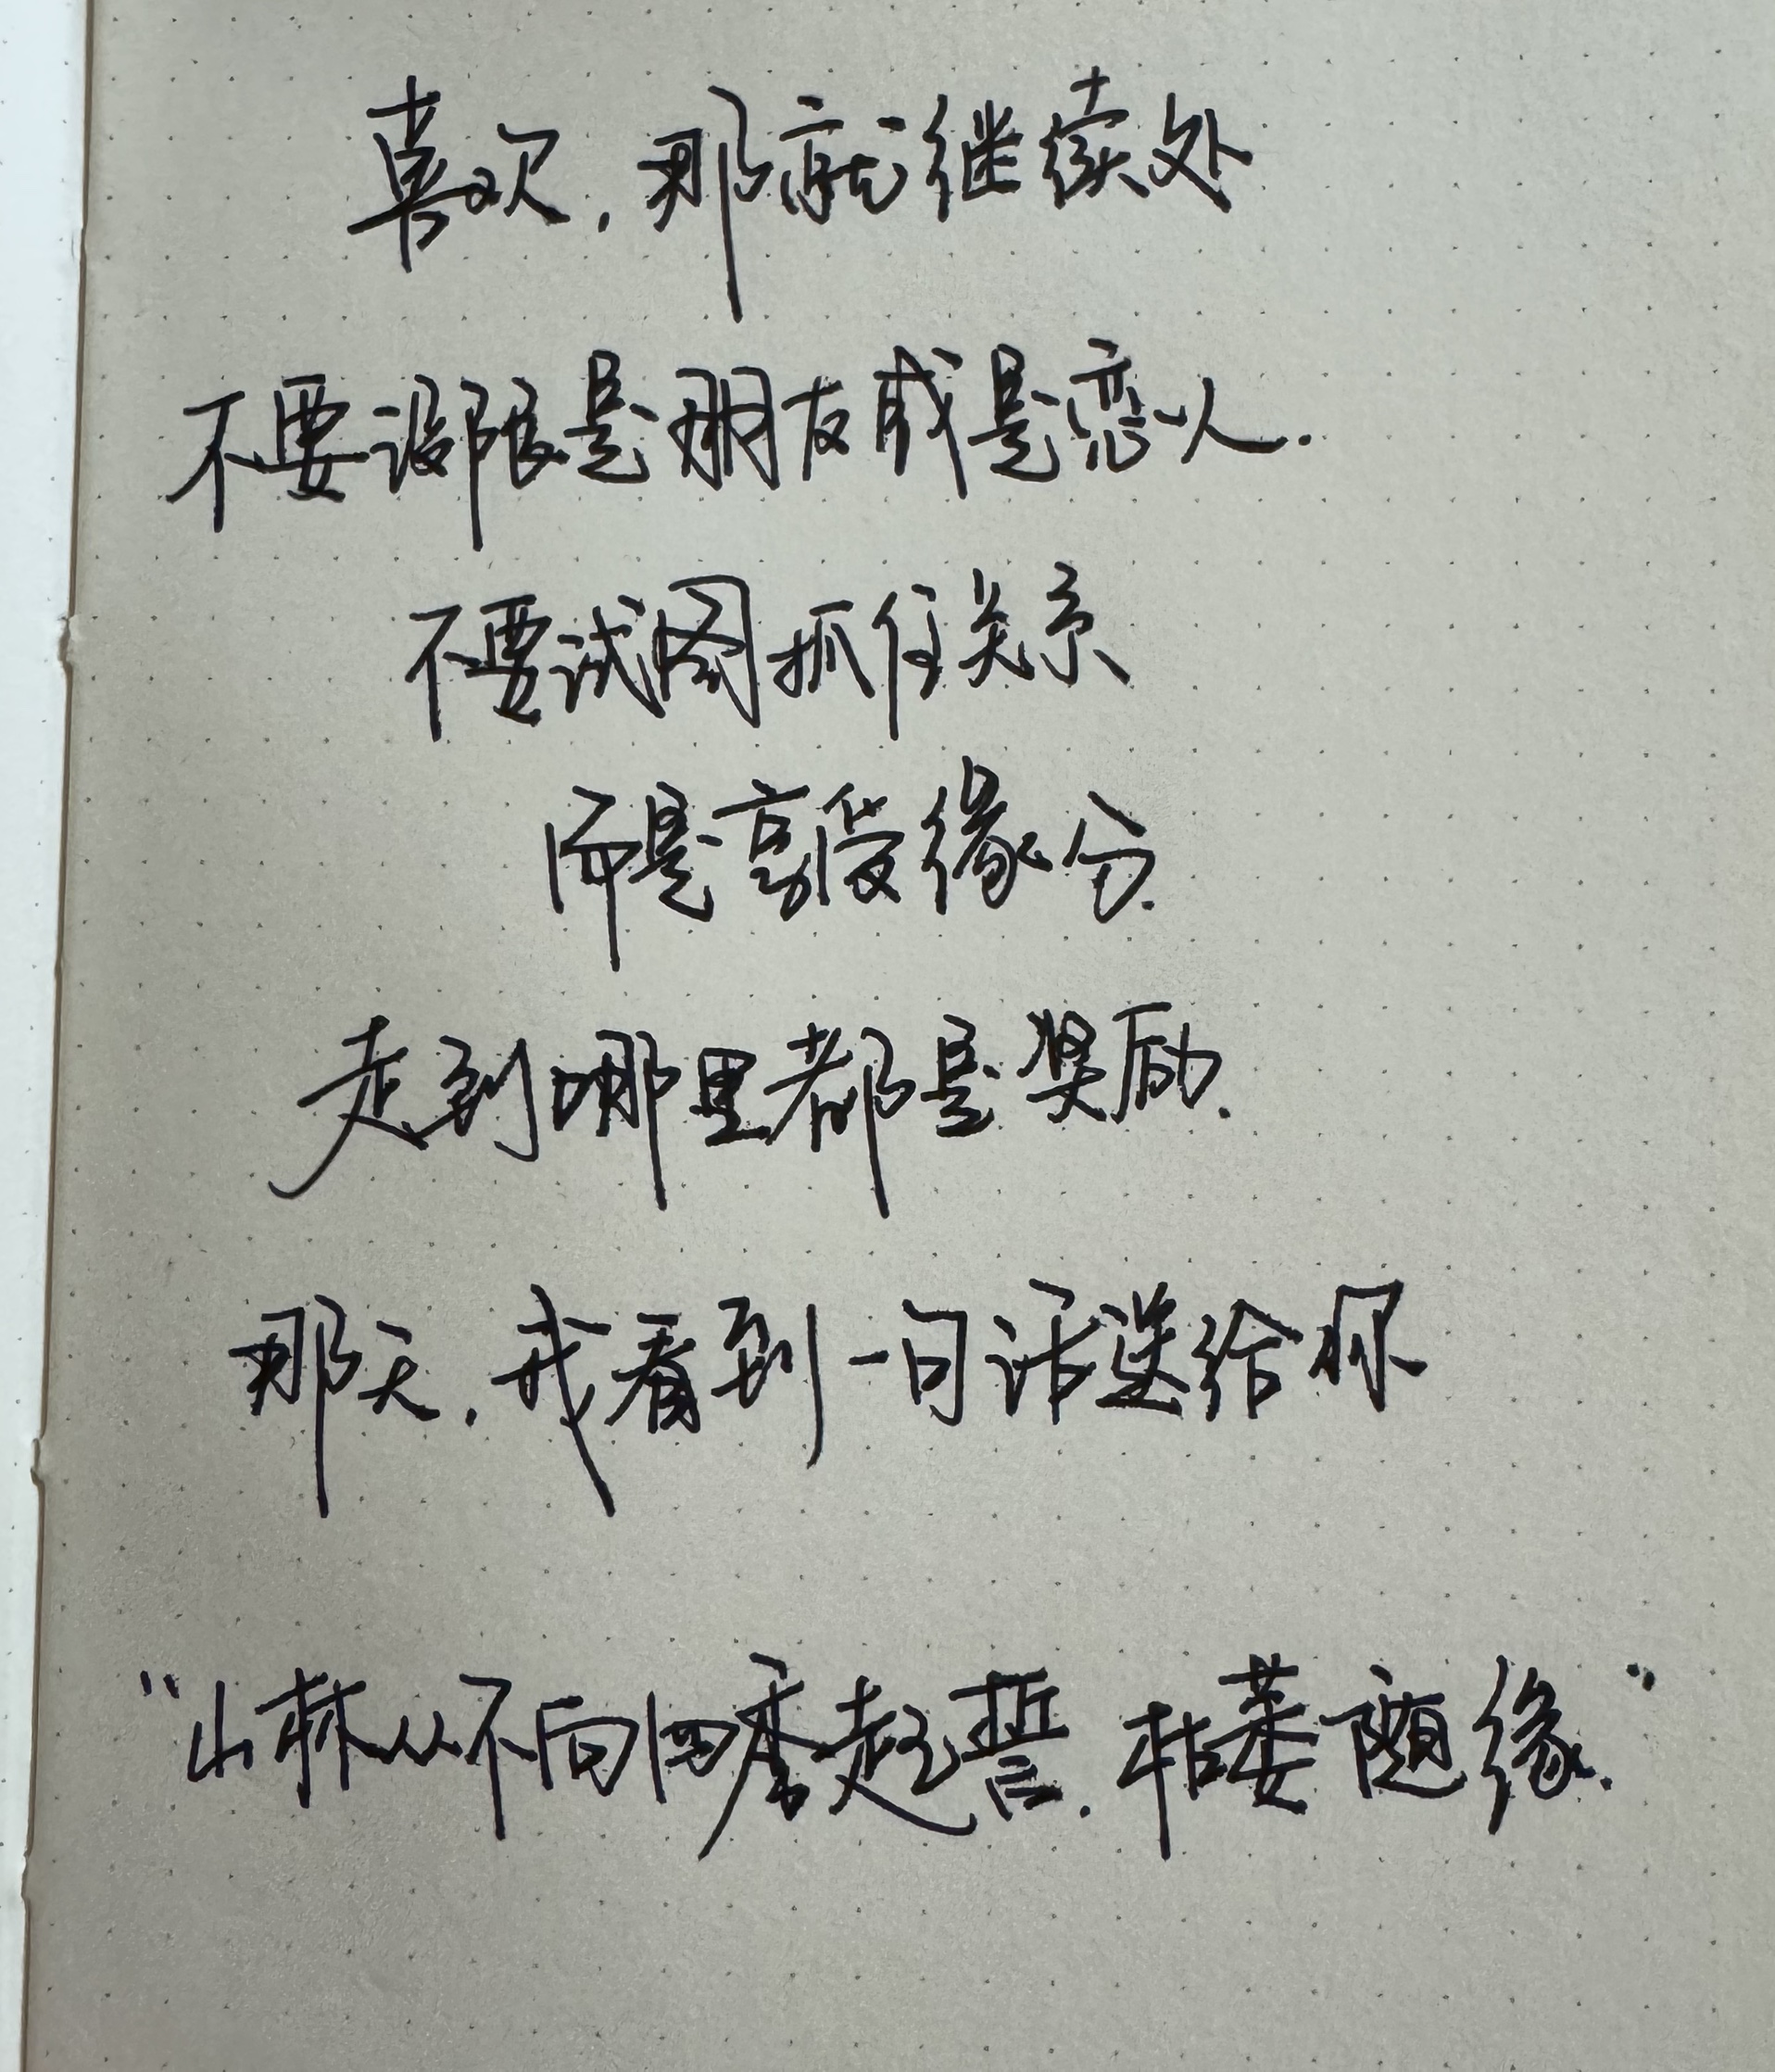 喜欢，那就继续处
不要设限是朋友或是恋人.
不要试图抓住关系
而是享受缘分.
走到哪里都是奖励.
那天，我看到一句话送给你
“山林从不向四季起誓.枯萎随缘.”